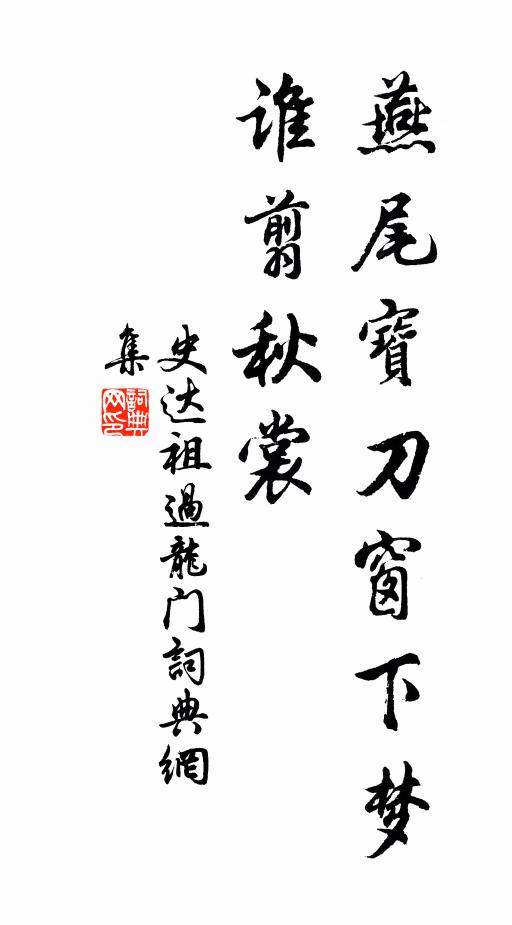 燕尾寶刀窗下梦
谁剪秋裳
史达祖過龍门詞典網
集
詞典
网印